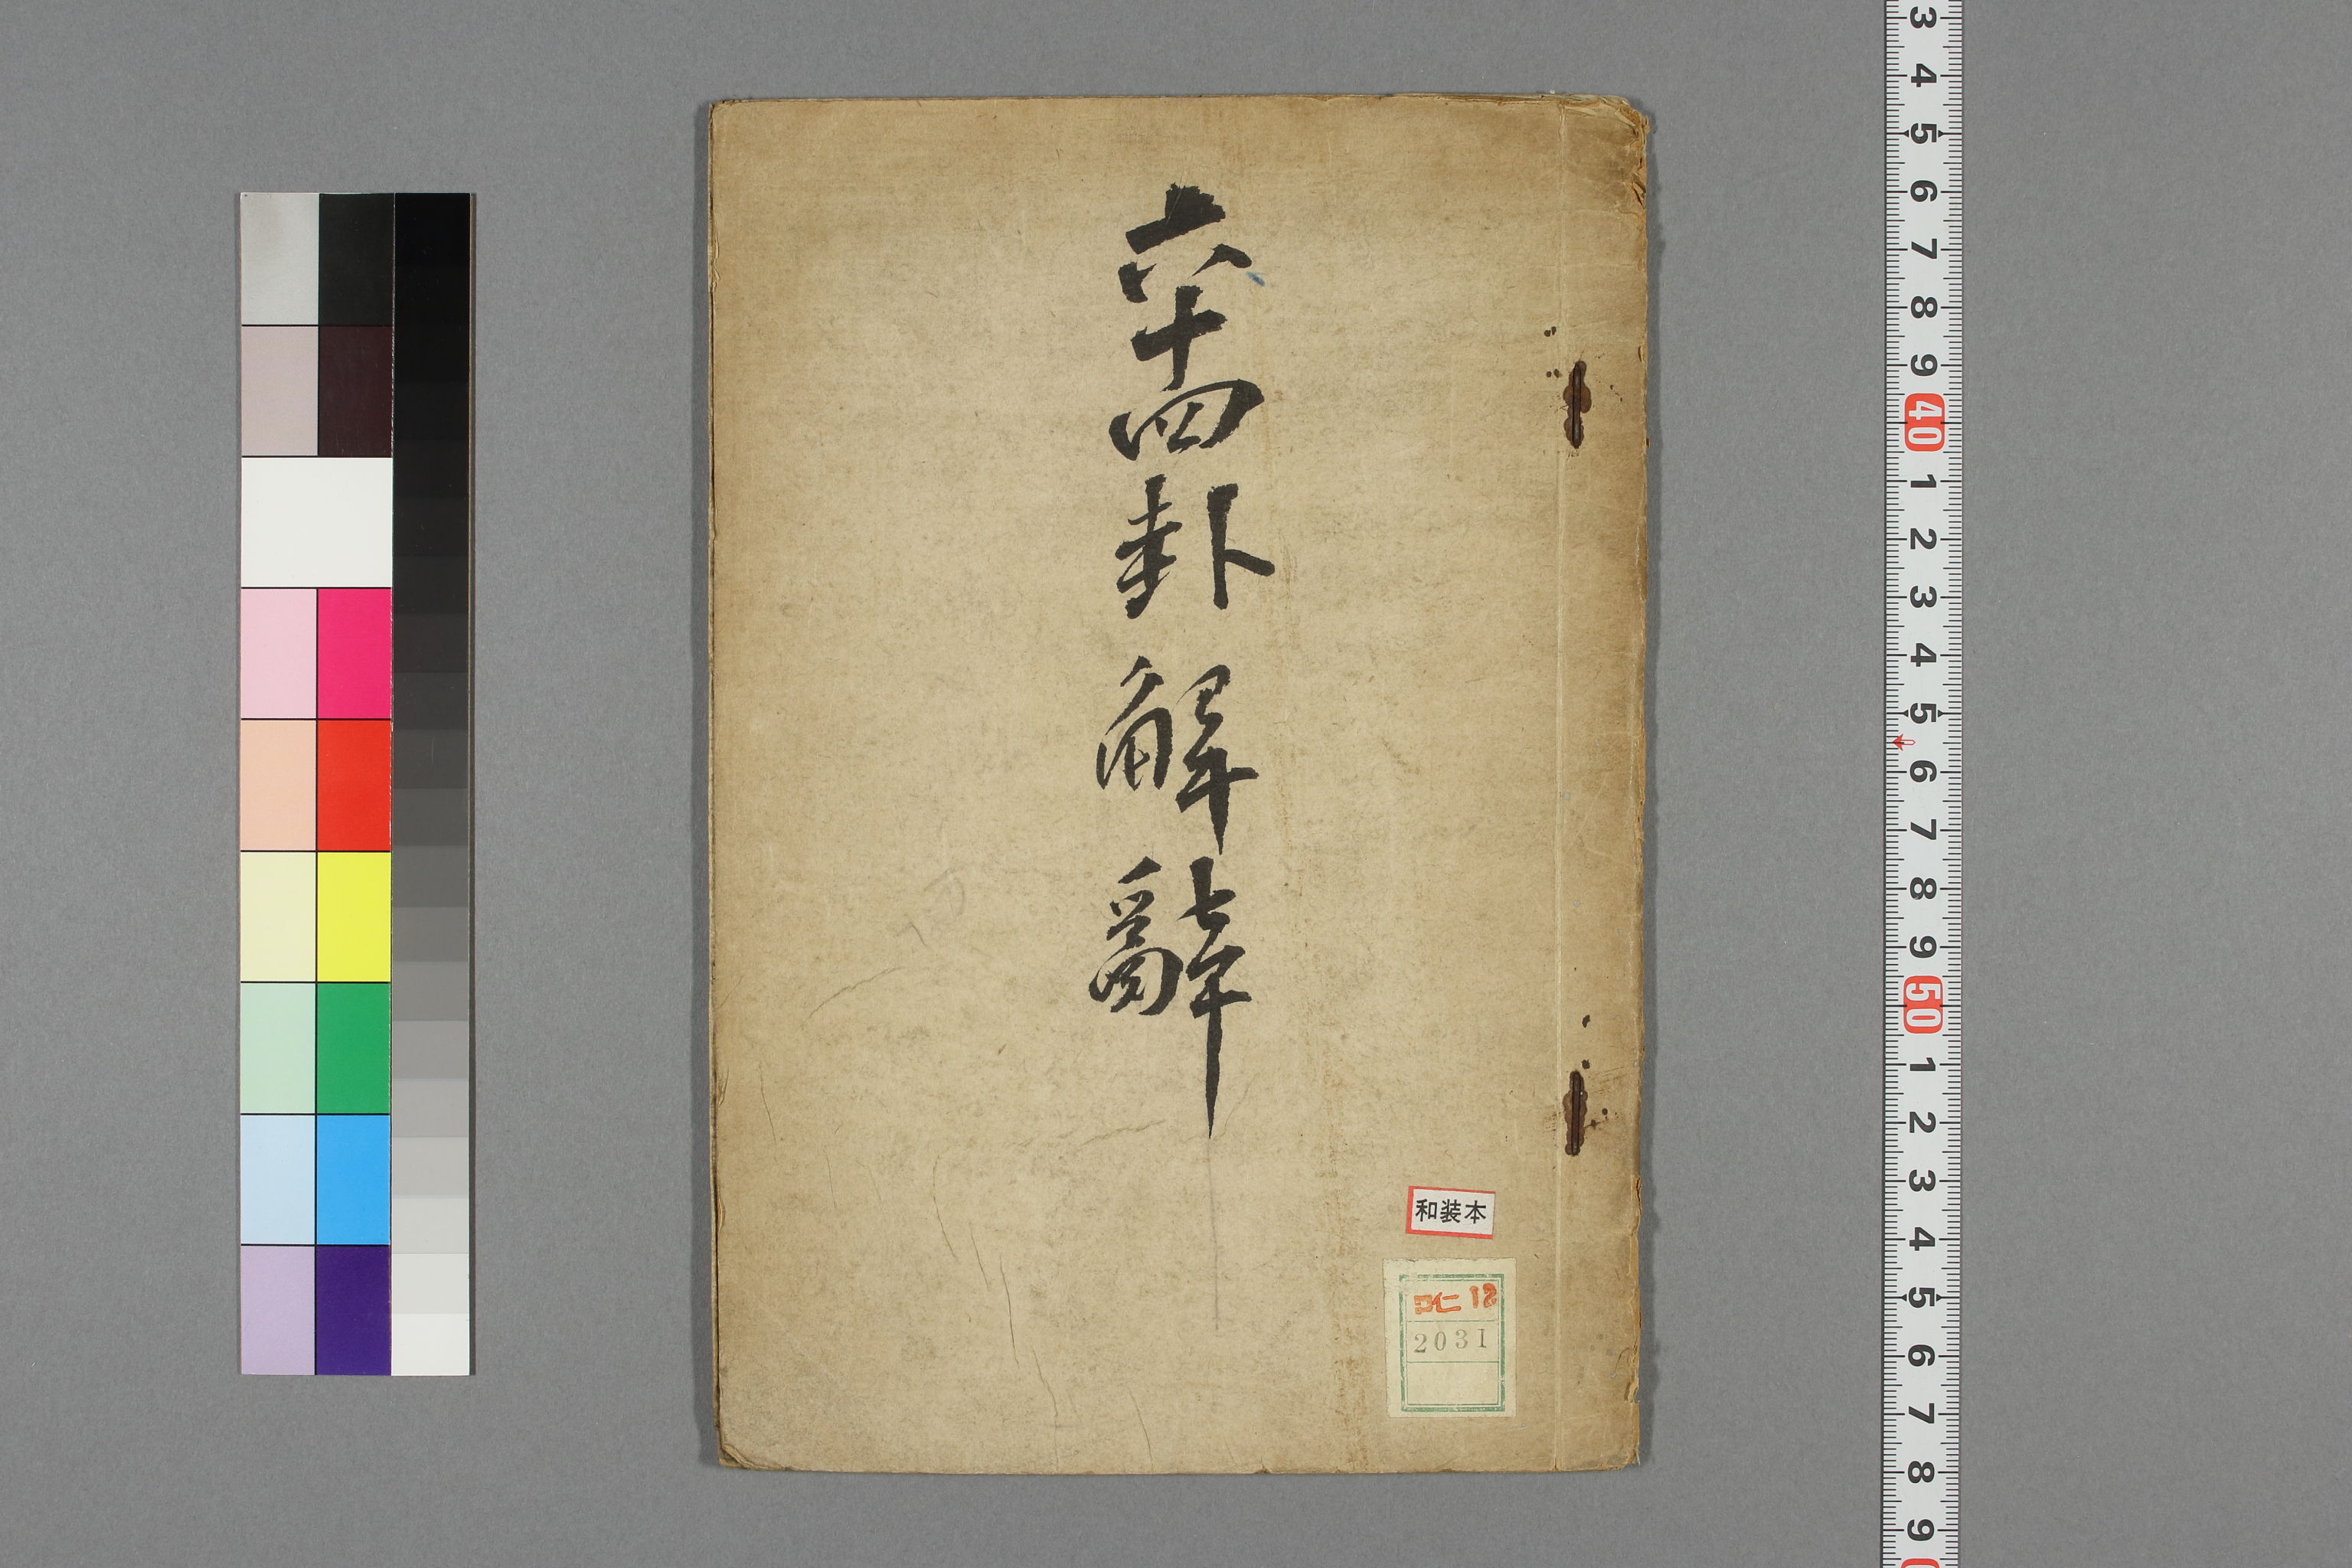 六十四卦解辭
和装本
コ仁 12
2031
3
4
5
6
7
8
9
40
1
2
3
4
5
6
7
8
9
50
1
2
3
4
5
6
7
8
9